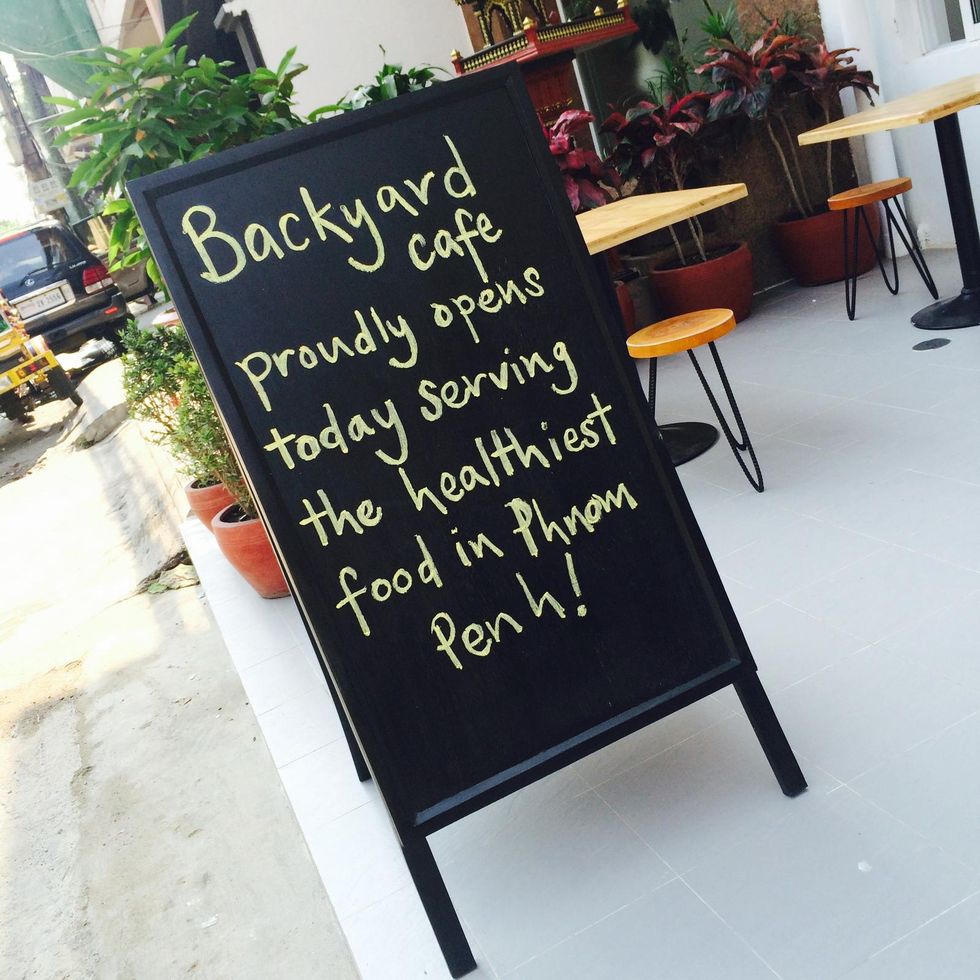 Backyard
cafe
proudly opens
today serving
the healthiest
food in Phnom
Penh!